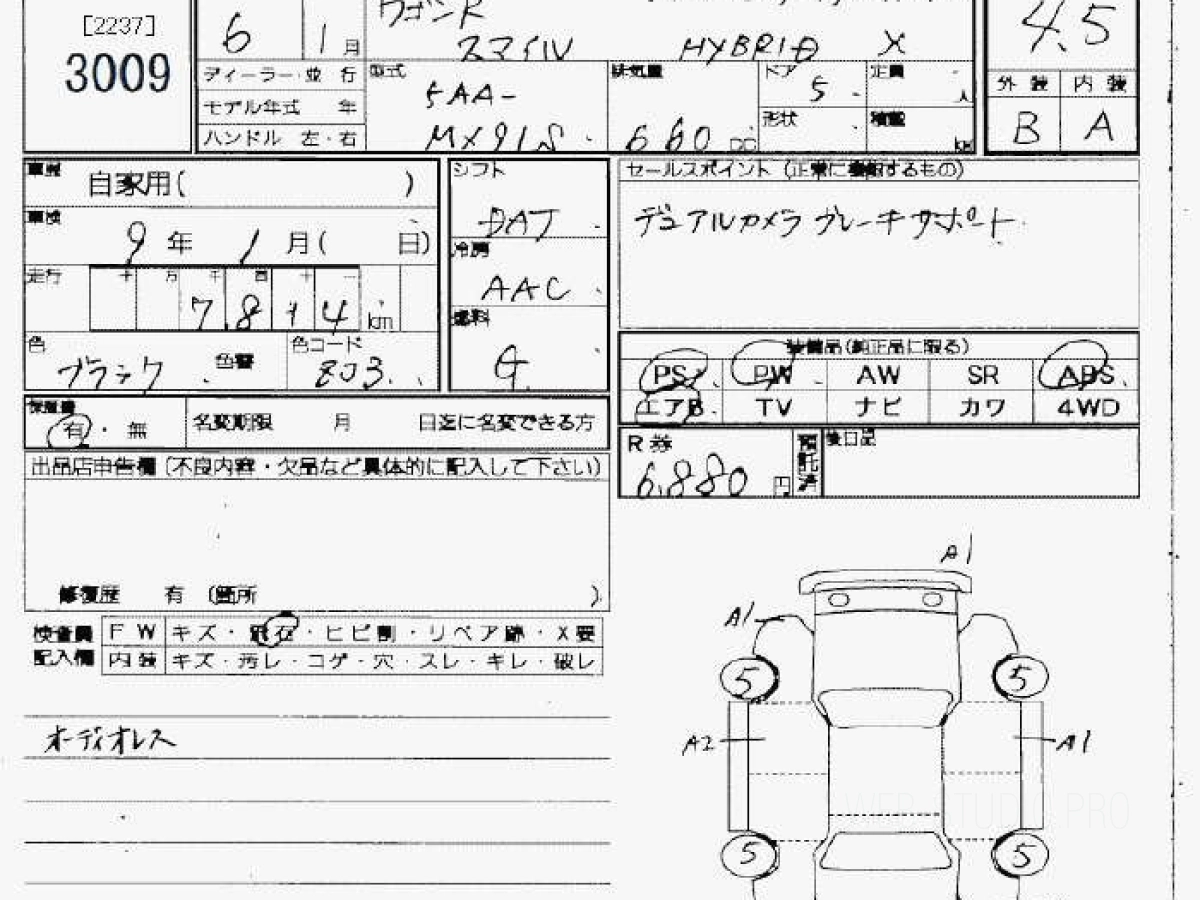 [2237]
3009
6 1月
ワゴンR
スマイル HYBRID X
4.5
ディーラー・並行
型式
5AA-
MX91S
排気量
660 cc
ドア
5
定員
人
モデル年式 年
形状
積載
ハンドル 左・右
外装 内装
B A
車歴
自家用( )
シフト
DAT
セールスポイント (正常に機能するもの)
デュアルカメラブレーキサポート
車検
9年 1月( 日)
冷房
AAC
走行
十 万 千 百 十 一
7,814 km
燃料
G
色
ブラック
色替
色コード
ZJ3
装備品(純正品に限る)
PS PW AW SR ABS
エアB TV ナビ カワ 4WD
保証書
有・無
名変期限 月 日迄に名変できる方
R券
6,880円
預託済
後日品
出品店申告欄 (不良内容・欠品など具体的に記入して下さい)
修復歴 有 (箇所 )
検査員
記入欄
FW キズ・飛石・ヒビ割・リペア跡・X要
内装 キズ・汚レ・コゲ・穴・スレ・キレ・破レ
オーディオレス
A1
A1
5 5
A2 A1
5 5
WEB STUDIO PRO